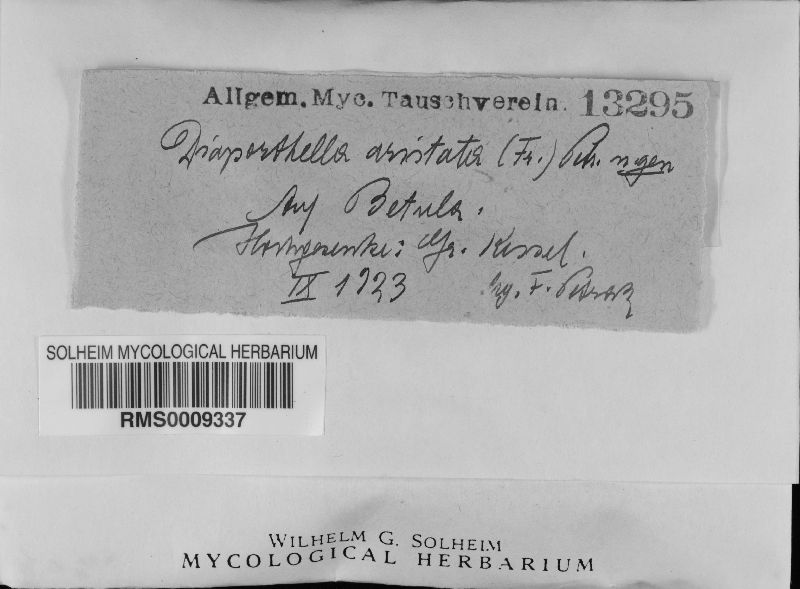 Allgem. Myc. Tauschverein. 13295
Diaporthella aristata (Fr.) Petr. n. gen
Auf Betula.
Hochgesenke: Gr. Kessel.
IX 1923 lg. F. Petrak
SOLHEIM MYCOLOGICAL HERBARIUM
RMS0009337
WILHELM G. SOLHEIM
MYCOLOGICAL HERBARIUM